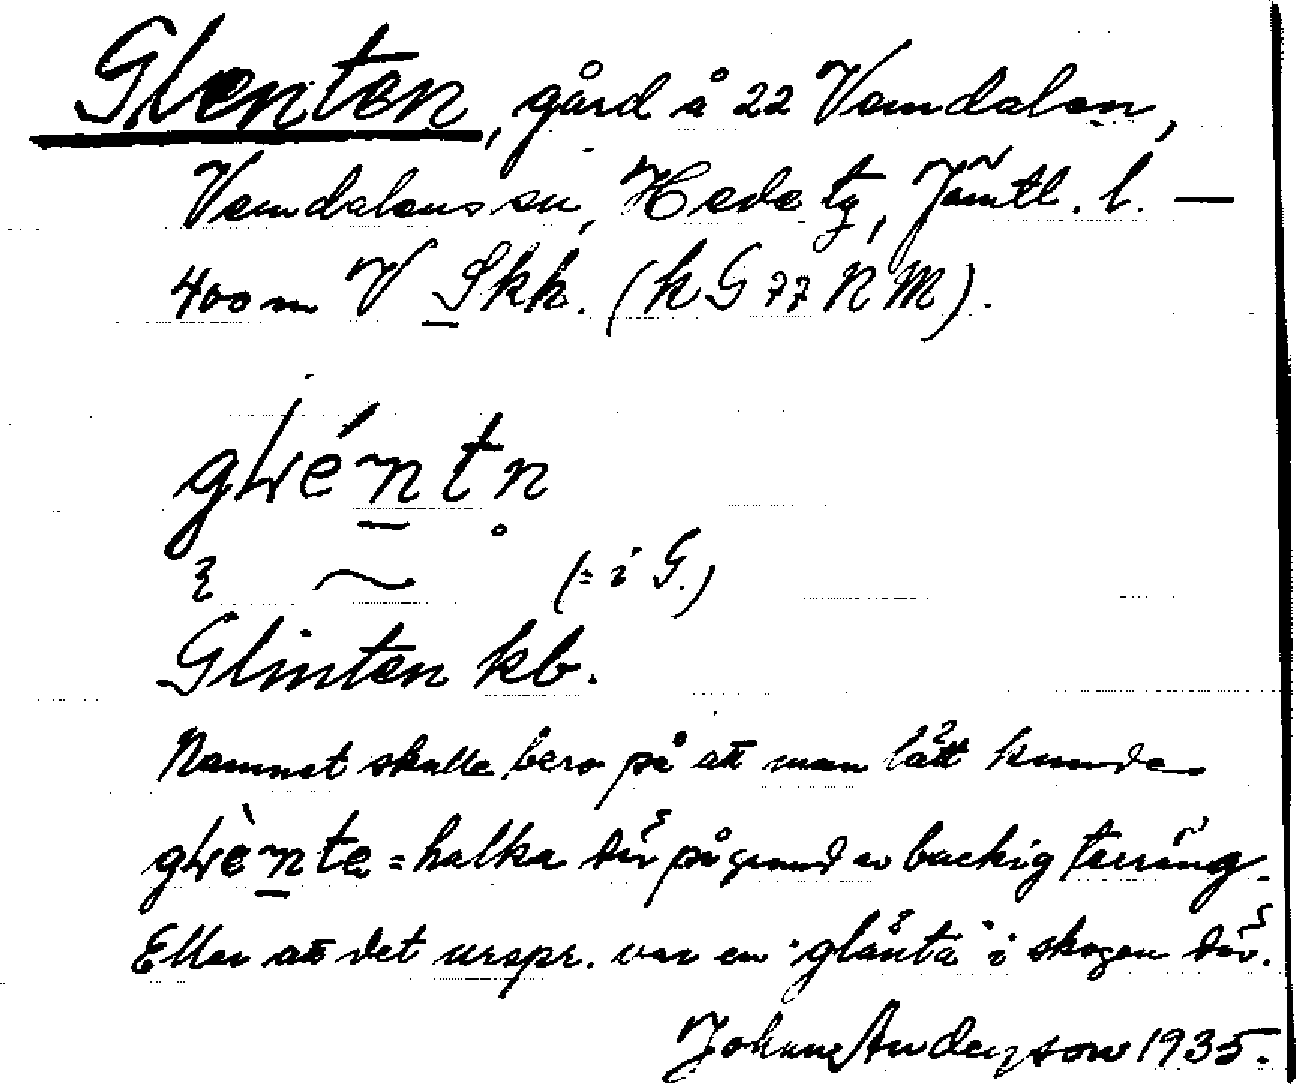 Glenten, gård å 22 Vemdalen,
Vemdalens sn, Hede tg, Jämtl. l. —
400 m V Skh. (k G 77 N M).
glént n
(= i G.)
Glinten kb.
Namnet skulle bero på att man lätt kunde
glènte = halka där på grund av backig terräng.
Eller att det urspr. var en "glänta" i skogen där.
Johan Anderson 1935.